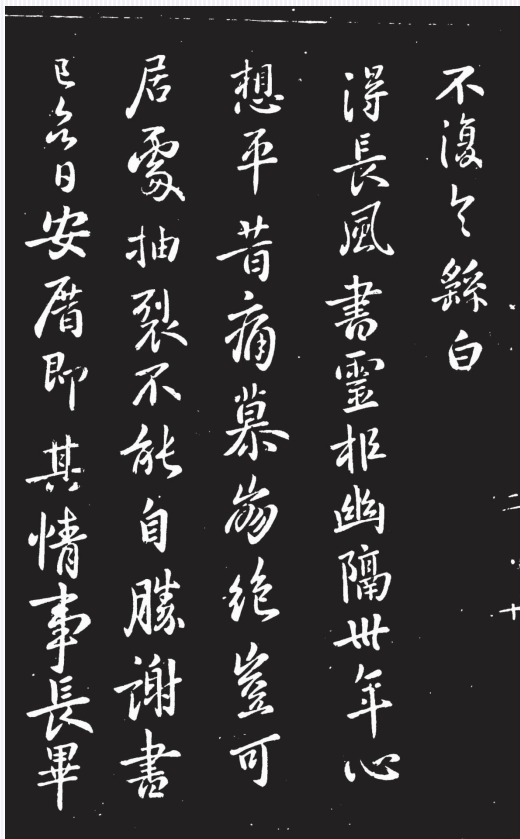 不復繇白
得長風書靈柩幽隔卅年心
想平昔痛慕崩絕豈可
居處抽裂不能自勝謝書
已日安厝即其情事長畢
二十